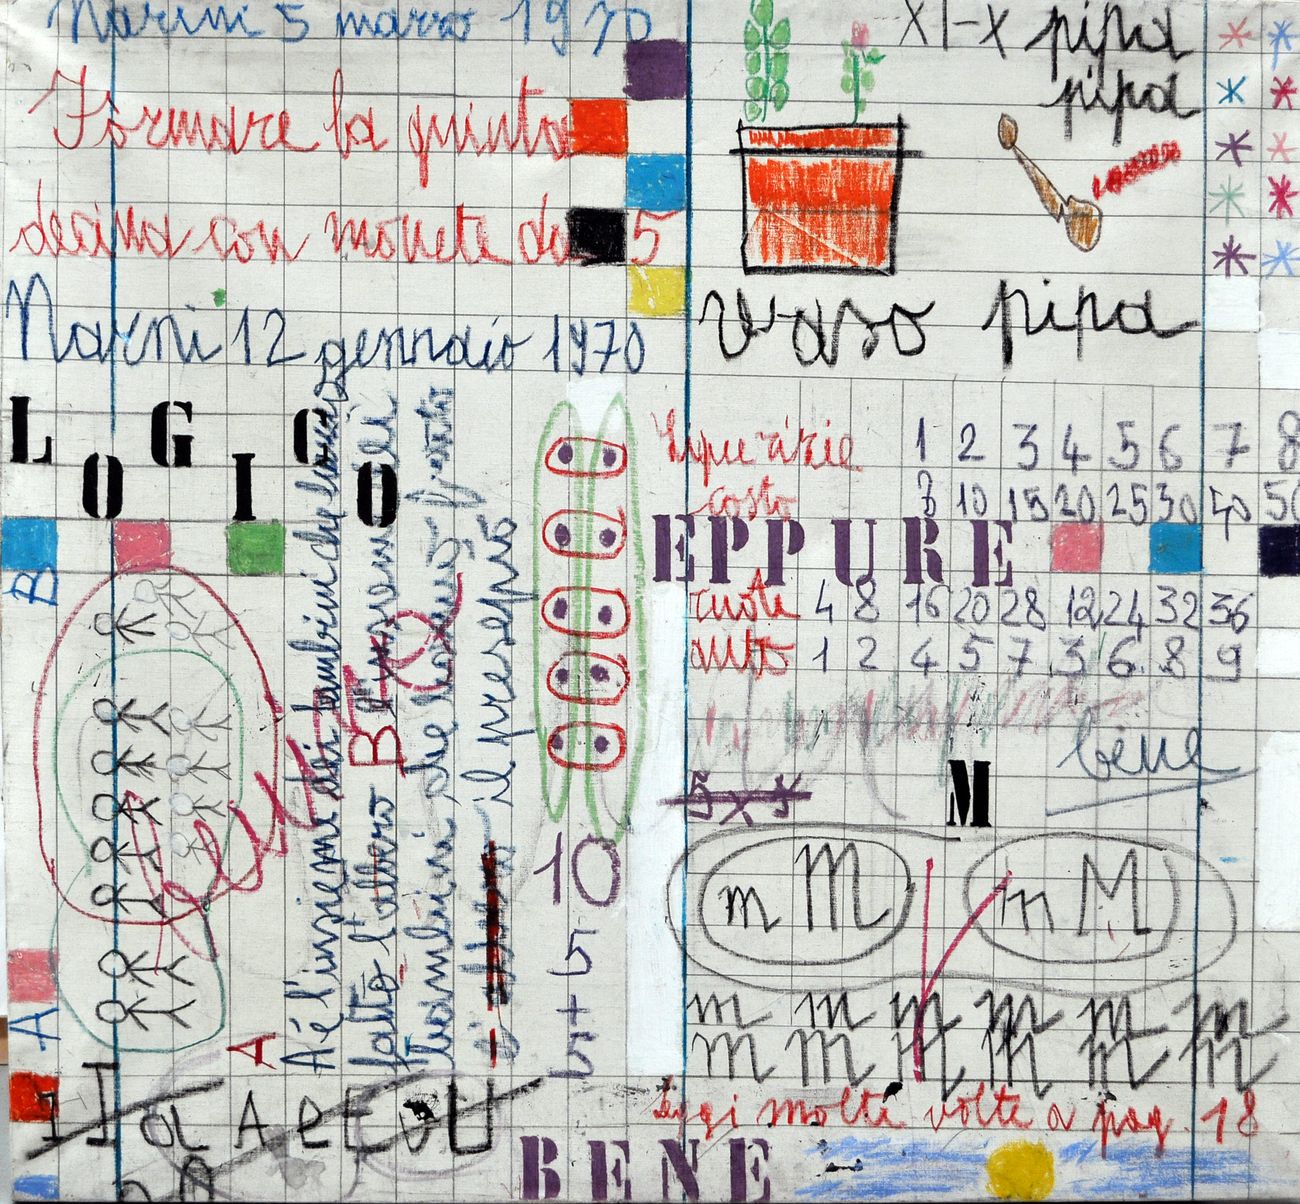 Narni 5 marzo 1970
Formare la quinta
decina con monete da 5
Narni 12 gennaio 1970
XI-X pipa
pipa
vaso pipa
LOGICO
B
A
A
A è l'insieme dei bambini che hanno
fatto l'albero B l'insieme dei
bambini che hanno fatto
il presepio
10
5+5
1 2 3 4 5 6 7 8
costo 8 10 15 20 25 30 40 50
EPPURE
ruote 4 8 16 20 28 12 24 32 36
auto 1 2 4 5 7 3 6 8 9
bene
M
5x5
m M m M
m m m m m m
m m m m m m
Leggi molte volte a pag. 18
i I a A e E o u U
BENE